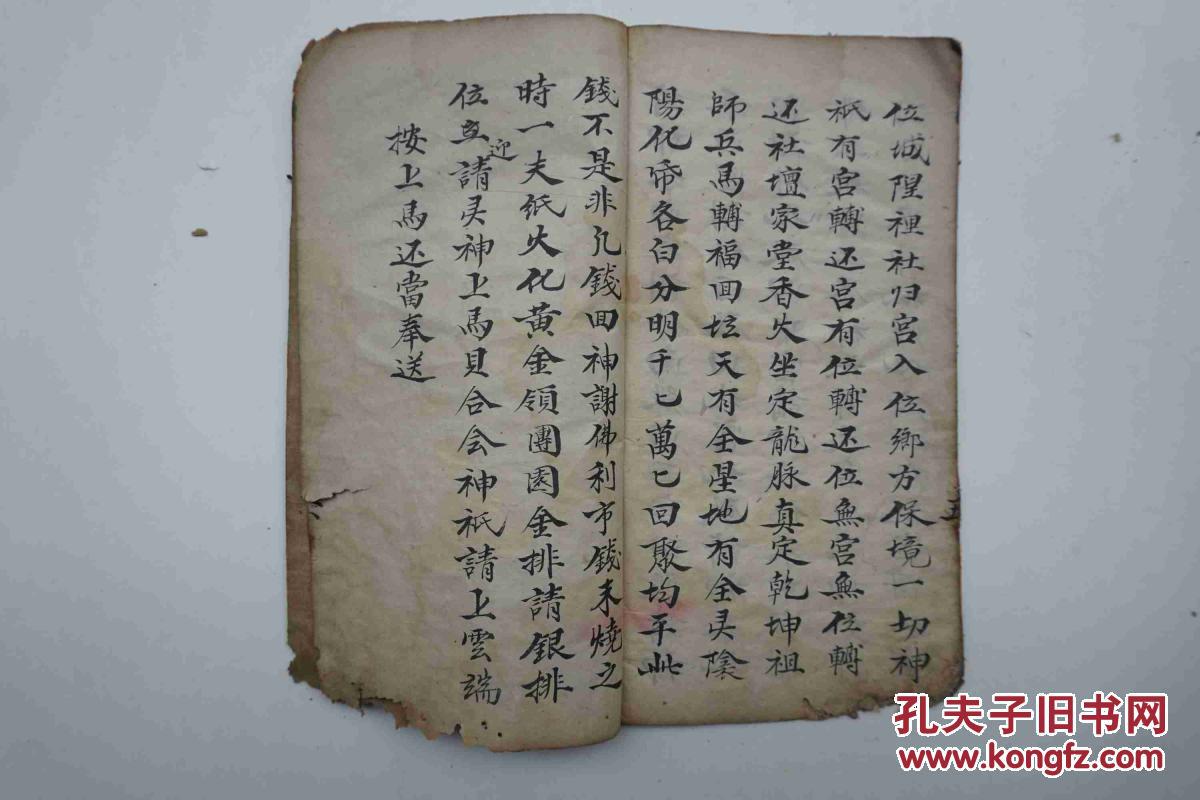 位城隍裡社归宫入位鄉方保境一切神
祇有宫轉还宫有位轉还位無宫無位轉
还社壇家堂香火坐定龍脉真定乾坤祖
師兵馬轉福回坛天有全星地有全灵陰
陽化帋各自分明千匕萬匕回聚均平此
錢不是非凡錢回神謝佛利市錢未燒之
時一夫紙火化黄金領團圎金排請銀排
位立請迎灵神上馬貝合会神祇請上雲端
按上馬还當奉送
五
孔夫子旧书网
www.kongfz.com